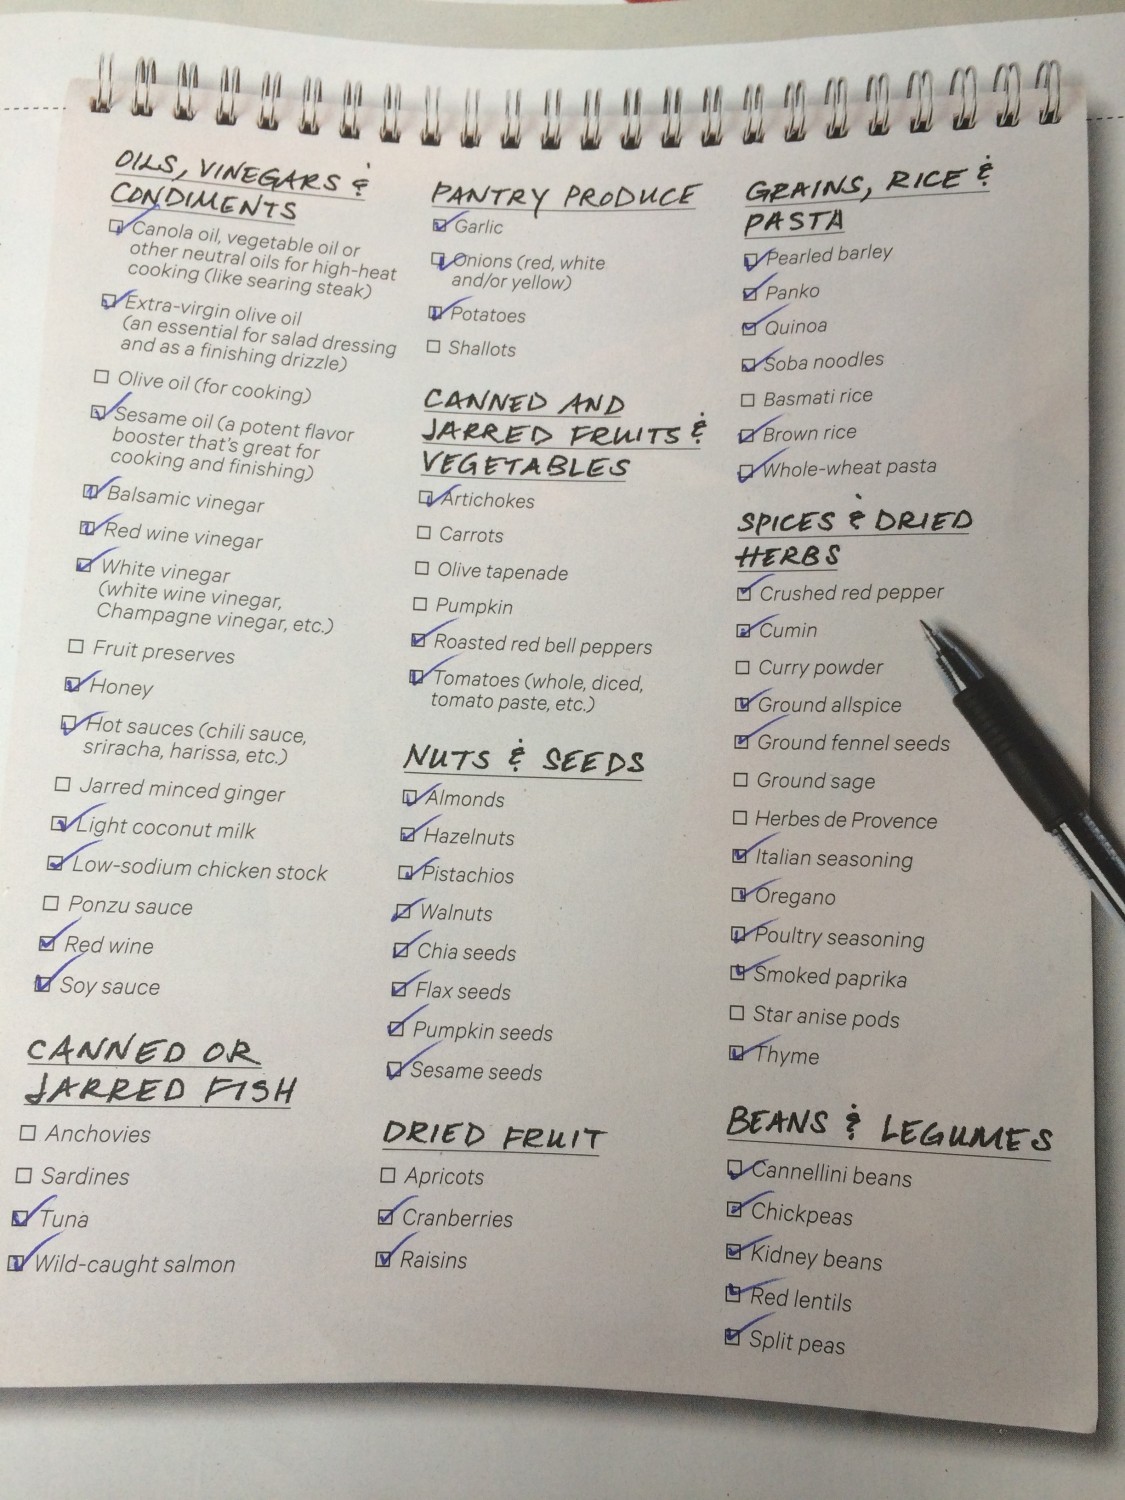 OILS, VINEGARS &
CONDIMENTS
Canola oil, vegetable oil or
other neutral oils for high-heat
cooking (like searing steak)
Extra-virgin olive oil
(an essential for salad dressing
and as a finishing drizzle)
Olive oil (for cooking)
Sesame oil (a potent flavor
booster that's great for
cooking and finishing)
Balsamic vinegar
Red wine vinegar
White vinegar
(white wine vinegar,
Champagne vinegar, etc.)
Fruit preserves
Honey
Hot sauces (chili sauce,
sriracha, harissa, etc.)
Jarred minced ginger
Light coconut milk
Low-sodium chicken stock
Ponzu sauce
Red wine
Soy sauce
CANNED OR
JARRED FISH
Anchovies
Sardines
Tuna
Wild-caught salmon
PANTRY PRODUCE
Garlic
Onions (red, white
and/or yellow)
Potatoes
Shallots
CANNED AND
JARRED FRUITS &
VEGETABLES
Artichokes
Carrots
Olive tapenade
Pumpkin
Roasted red bell peppers
Tomatoes (whole, diced,
tomato paste, etc.)
NUTS & SEEDS
Almonds
Hazelnuts
Pistachios
Walnuts
Chia seeds
Flax seeds
Pumpkin seeds
Sesame seeds
DRIED FRUIT
Apricots
Cranberries
Raisins
GRAINS, RICE &
PASTA
Pearled barley
Panko
Quinoa
Soba noodles
Basmati rice
Brown rice
Whole-wheat pasta
SPICES & DRIED
HERBS
Crushed red pepper
Cumin
Curry powder
Ground allspice
Ground fennel seeds
Ground sage
Herbes de Provence
Italian seasoning
Oregano
Poultry seasoning
Smoked paprika
Star anise pods
Thyme
BEANS & LEGUMES
Cannellini beans
Chickpeas
Kidney beans
Red lentils
Split peas